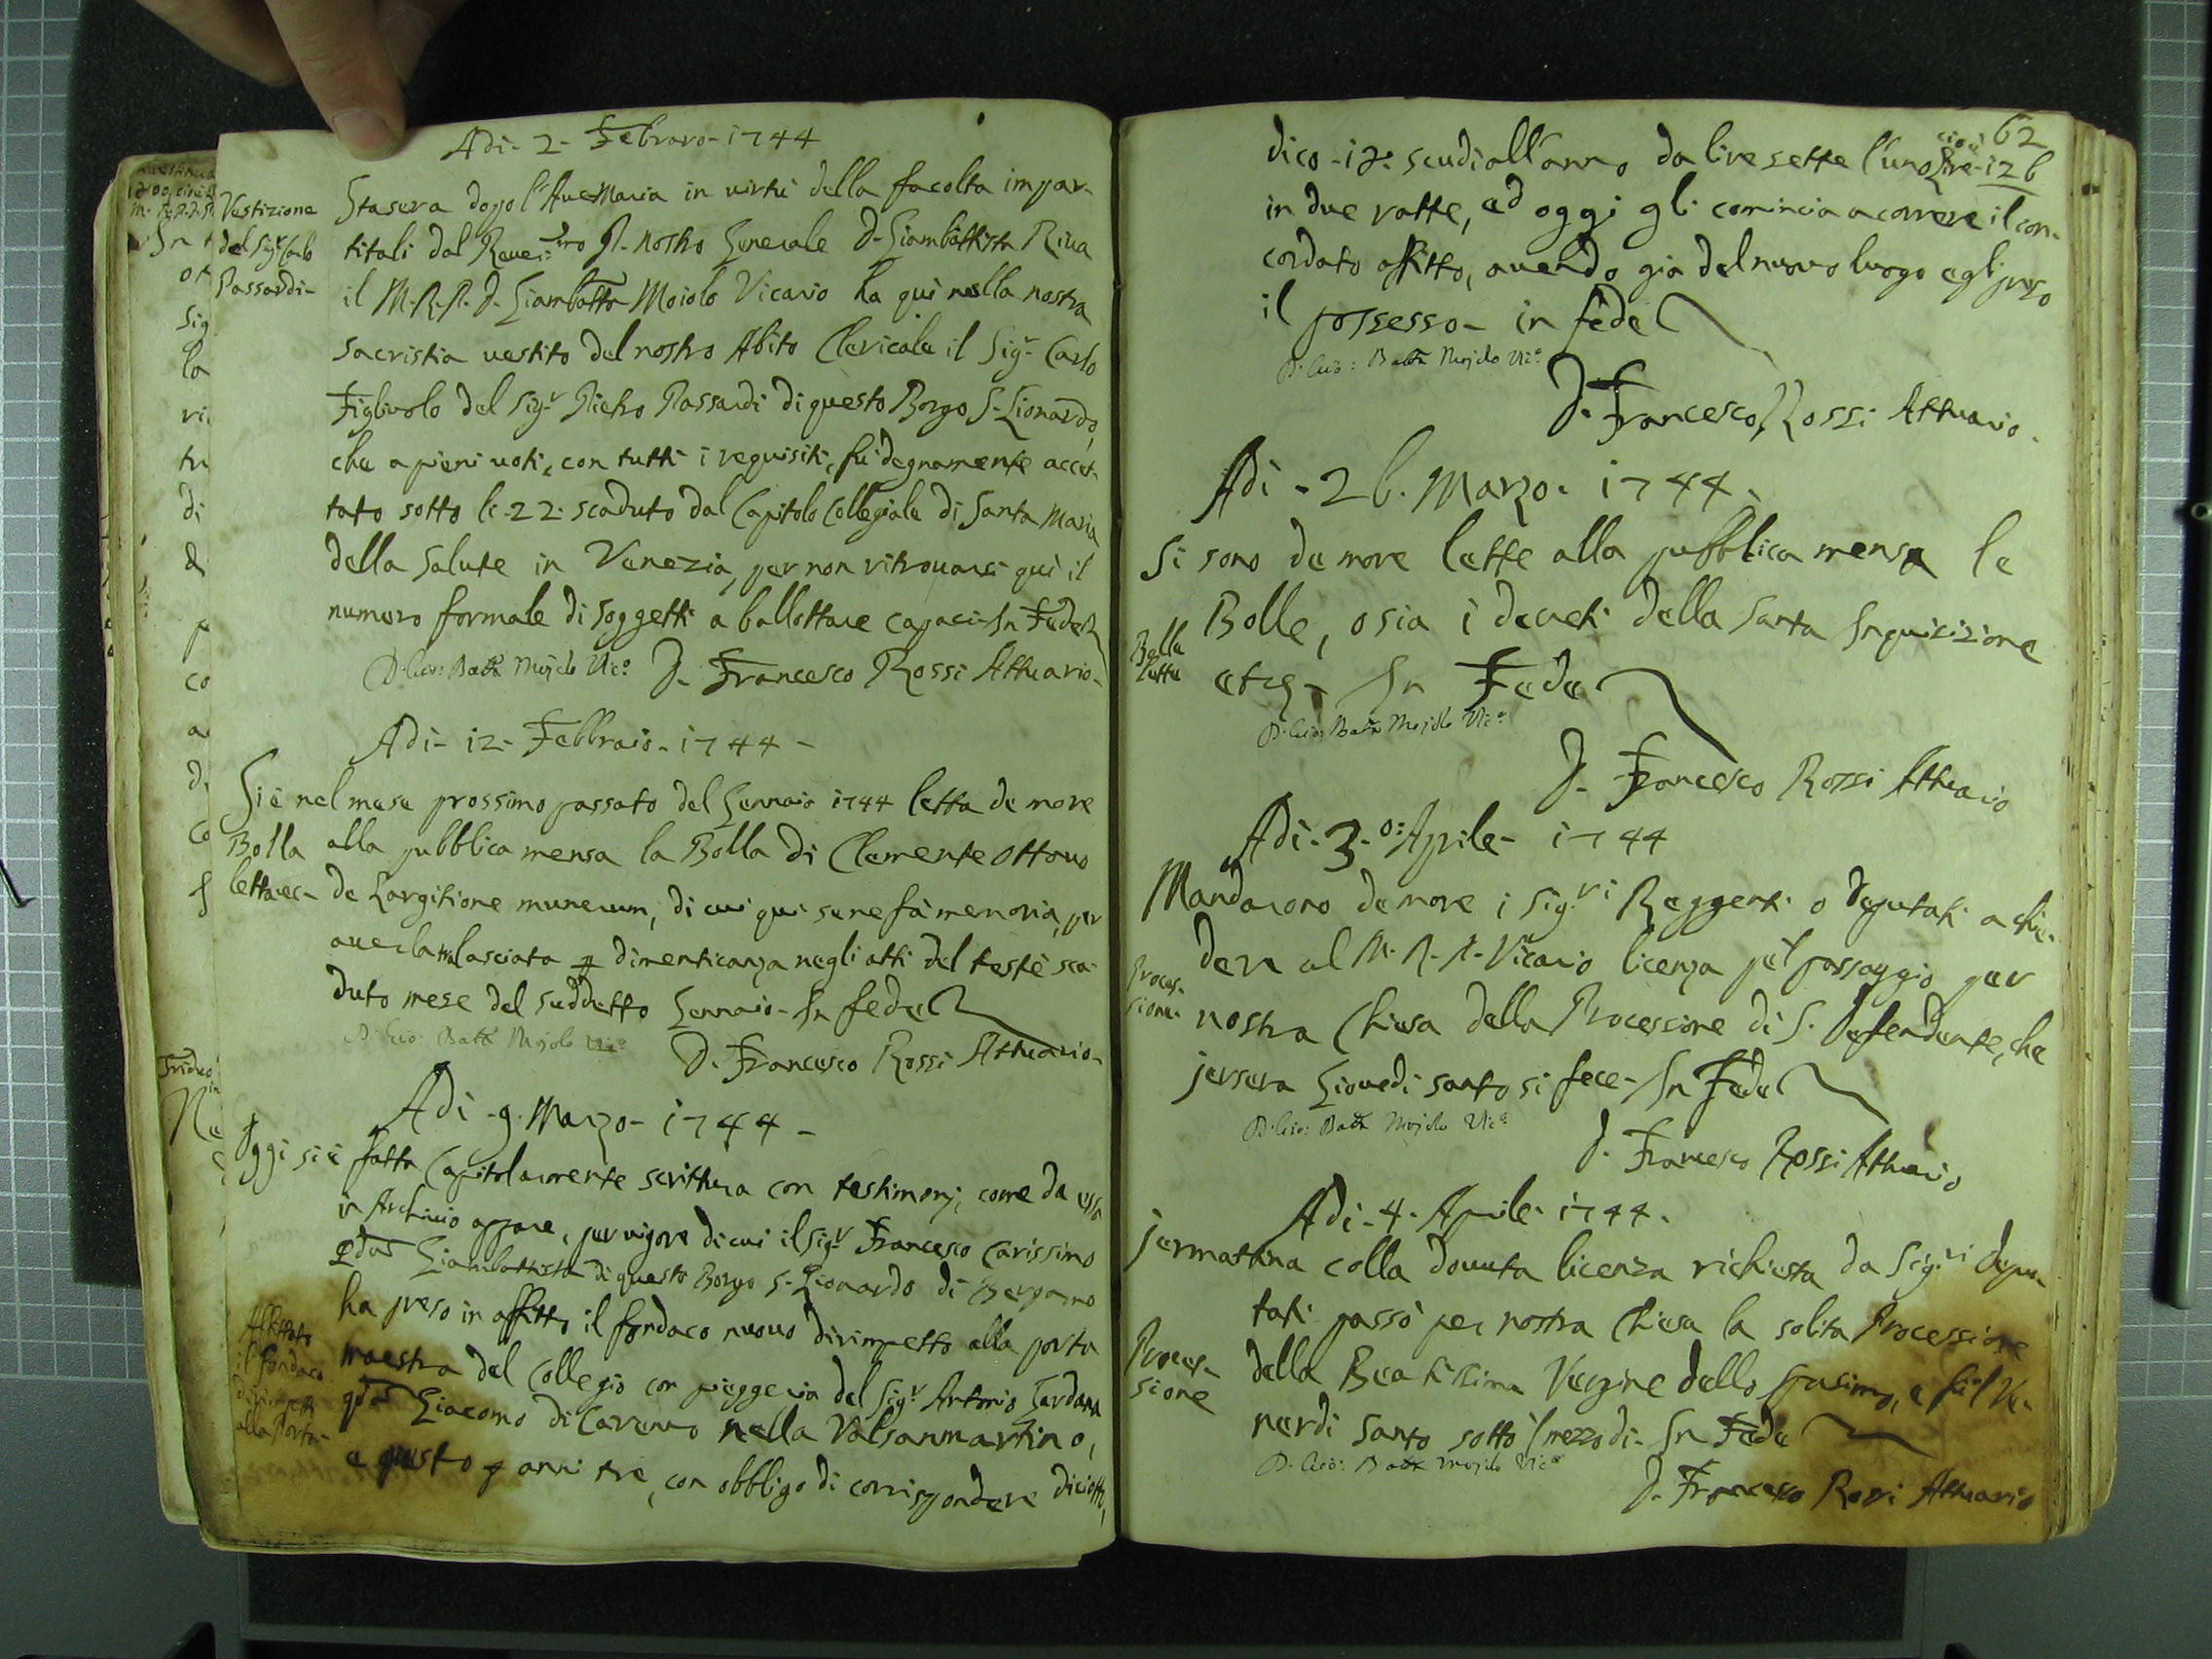 Adi - 2 - Febraro - 1744
Vestizione
del Sig.r Carlo
Passardi -
Stasera dopo l'Aue Maria in uirtù della facolta impar-
titali dal Reuer.mo P. nostro Generale D. Giambattista Riua
il M. R. P. D. Giambatta Moiolo Vicario ha qui nella nostra
sacristia uestito del nostro Abito Clericale il Sig.r Carlo
Figliuolo del Sig.r Pietro Passardi di questo Borgo S. Lionardo,
che a pieni uoti, con tutti i requisiti, fù degnamente accet-
tato sotto li - 22 - scaduto dal Capitolo Collegiale di Santa Maria
della Salute in Venezia, per non ritrouarsi quì il
numero formale di soggetti a ballottare capaci - In Fede
D. Gio: Batta Mojolo Vic.o D. Francesco Rossi Attuario -
Adi - 12 - Febbraio - 1744 -
Si è nel mese prossimo passato del Gennaio 1744 letta de more
Bolla
letta ec -
alla pubblica mensa la Bolla di Clemente Ottauo
de Largitione munerum, di cui qui se ne fà memoria, per
auerla tralasciata p dimenticanza negli atti del testè sca-
duto mese del suddetto Gennaio - In fede
D. Gio: Batta Mojolo Vic.o
D. Francesco Rossi Attuario -
Adi - 9 - Marzo - 1744 -
Oggi si è fatta Capitolarmente scrittura con testimonj, come da essa
in Archiuio appare, per uigore di cui il Sig.r Francesco Carissimo
qdam Giambattista di questo Borgo S. Leonardo di Bergamo
ha preso in affitto il fondaco nuouo dirimpetto alla porta
Affittato
il fondaco
dirimpetto
alla Porta -
maestra del Collegio con pieggeria del Sig.r Antonio
qdam Giacomo di Carenno nella Valsanmartino,
e questo p anni tre, con obbligo di corrispondere diciotto,
62
dico - 18 - scudi all'anno da lire sette l'uno cioè Lire - 126
in due ratte, ed oggi gli comincia a correre il con-
cordato affitto, auendo già del nuouo luogo egli preso
il possesso - in fede
D. Gio: Batta Mojolo Vic.o
D. Francesco Rossi Attuario -
Adi - 26 - Marzo - 1744 -
Si sono de more lette alla pubblica mensa le
Bolle
lette
Bolle, o sia i decreti della Santa Inquisizione
etc - In Fede
D. Gio: Batta Mojolo Vic.o
D. Francesco Rossi Attuario
Adi - 3 - o: Aprile - 1744
Mandarono de more i Sig.ri Reggenti o deputati a chie-
dere al M. R. P. Vicario licenza pel passaggio per
Proces-
sione -
nostra Chiesa della Processione di S. Defendente, che
jersera Giouedi santo si fece - In Fede
D. Gio: Batta Mojolo Vic.o
D. Francesco Rossi Attuario
Adi - 4 - Aprile - 1744 -
jermattina colla douuta licenza richiesta da Sig.ri depu-
tati passò per nostra Chiesa la solita Processione
Proces-
sione
della Beatissima Vergine dello Spasimo, e fù il Ve-
nerdi Santo sotto l mezzodi - In Fede
D. Gio: Batta Mojolo Vic.o
D. Francesco Rossi Attuario